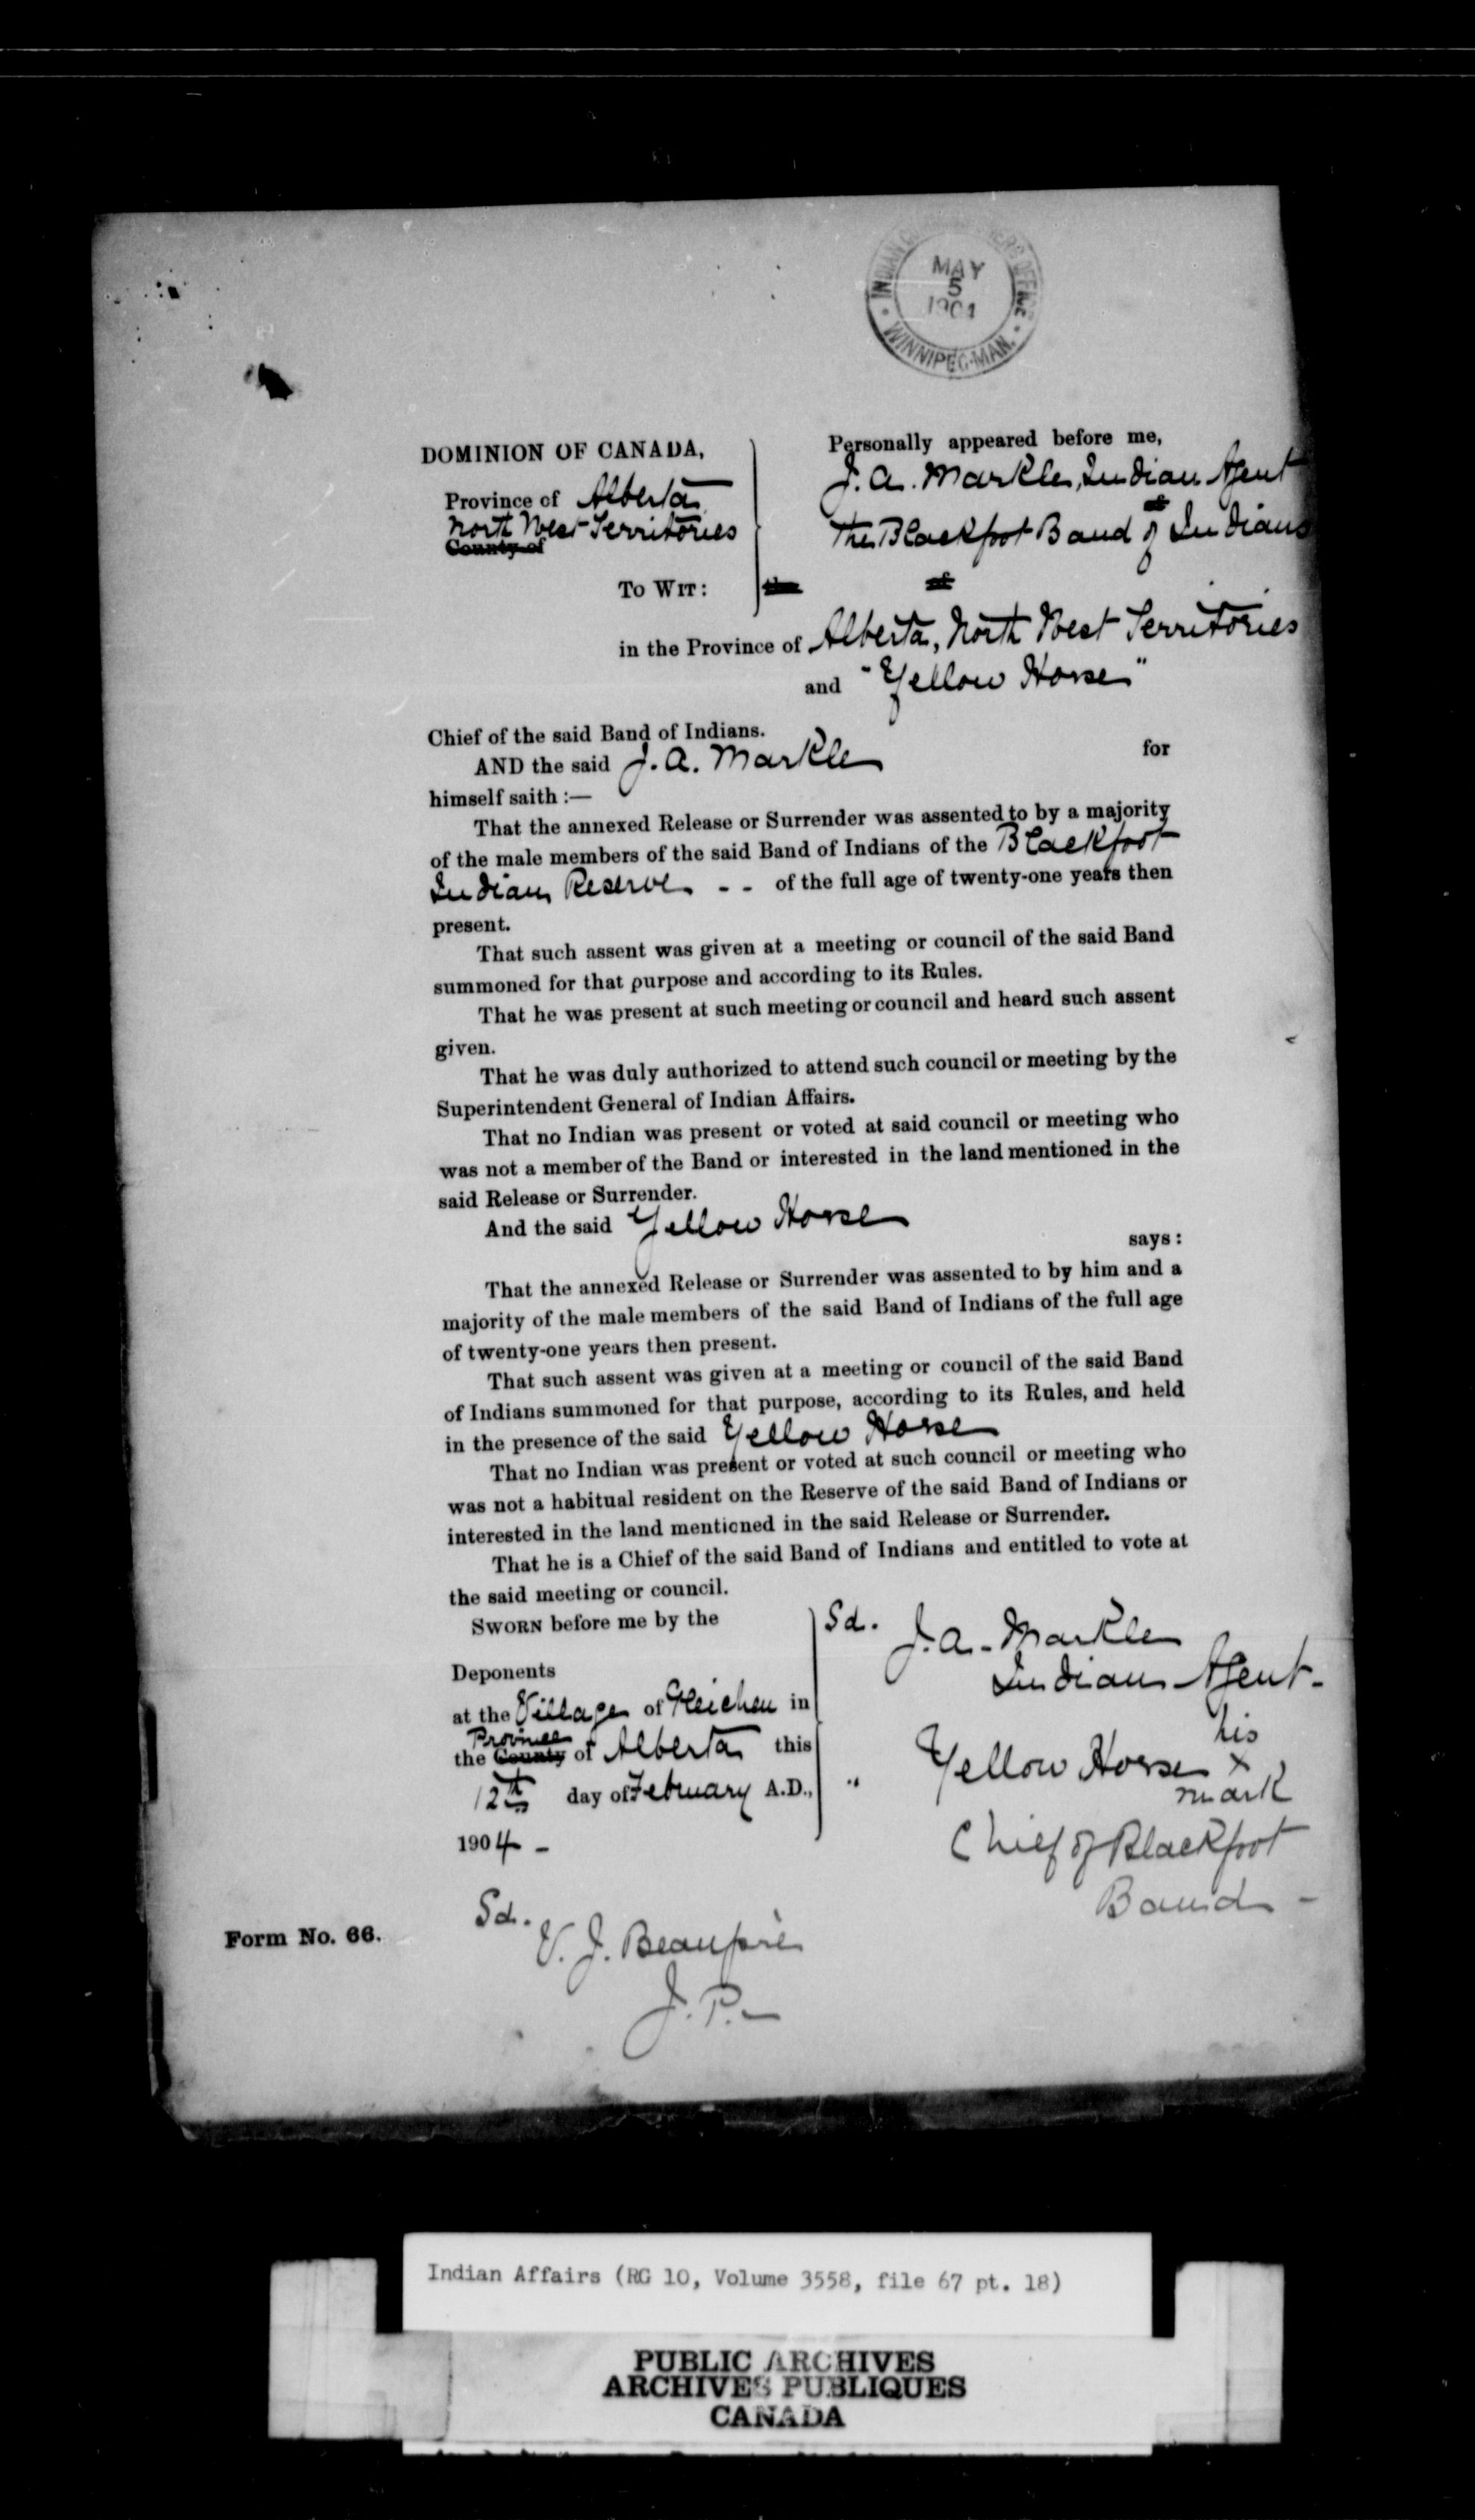 INDIAN COMMISSIONERS OFFICE
MAY
5
1904
WINNIPEG-MAN.
DOMINION OF CANADA,
Province of Alberta
North West Territories
County of
To Wit:
Personally appeared before me,
J. A. Markle, Indian Agent
of
The Blackfoot Band of Indians
the of
in the Province of Alberta, North West Territories
and "Yellow Horse"
Chief of the said Band of Indians.
AND the said J. A. Markle for
himself saith :—
That the annexed Release or Surrender was assented to by a majority
of the male members of the said Band of Indians of the Blackfoot
Indian Reserve - - of the full age of twenty-one years then
present.
That such assent was given at a meeting or council of the said Band
summoned for that purpose and according to its Rules.
That he was present at such meeting or council and heard such assent
given.
That he was duly authorized to attend such council or meeting by the
Superintendent General of Indian Affairs.
That no Indian was present or voted at said council or meeting who
was not a member of the Band or interested in the land mentioned in the
said Release or Surrender.
And the said Yellow Horse
says :
That the annexed Release or Surrender was assented to by him and a
majority of the male members of the said Band of Indians of the full age
of twenty-one years then present.
That such assent was given at a meeting or council of the said Band
of Indians summoned for that purpose, according to its Rules, and held
in the presence of the said Yellow Horse
That no Indian was present or voted at such council or meeting who
was not a habitual resident on the Reserve of the said Band of Indians or
interested in the land mentioned in the said Release or Surrender.
That he is a Chief of the said Band of Indians and entitled to vote at
the said meeting or council.
Sworn before me by the
Deponents
at the Village of Gleichen in
Province
the County of Alberta this
12th day of February A.D.,
1904 -
Sd. J. A. Markle
Indian Agent-
his
" Yellow Horse x
mark
Chief of Blackfoot
Band -
Sd. V. J. Beaupré
J. P. -
Form No. 66.
Indian Affairs (RG 10, Volume 3558, file 67 pt. 18)
PUBLIC ARCHIVES
ARCHIVES PUBLIQUES
CANADA